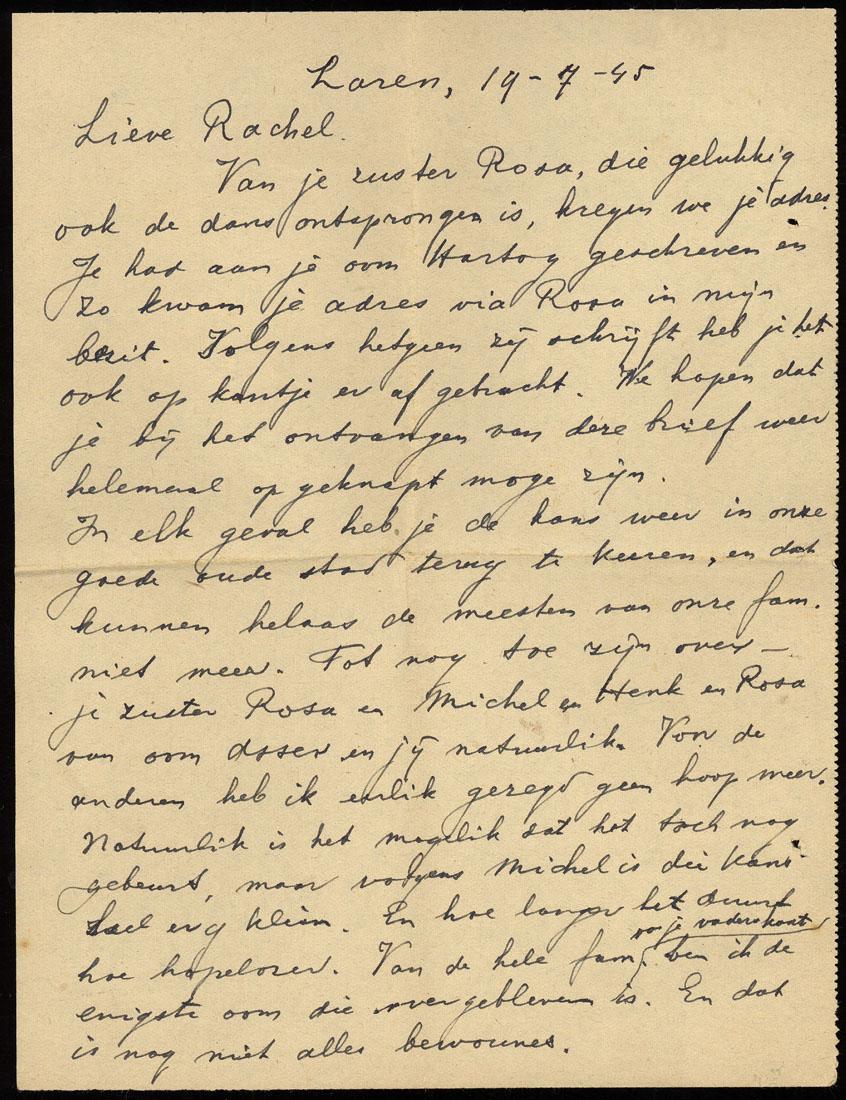 Laren, 19-7-45
Lieve Rachel.
Van je zuster Rosa, die gelukkig
ook de dans ontsprongen is, kregen we je adres.
Je had aan je oom Hartog geschreven en
zo kwam je adres via Rosa in mijn
bezit. Volgens hetgeen zij schrijft heb je het
ook op kantje er af gebracht. We hopen dat
je bij het ontvangen van deze brief weer
helemaal op geknapt moge zijn.
In elk geval heb je de kans weer in onze
goede oude stad terug te keeren, en dat
kunnen helaas de meesten van onze fam.
niet meer. Tot nog toe zijn over-
je zuster Rosa en Michel en Henk en Rosa
van oom Asser en jij natuurlik. Von de
anderen heb ik eerlik gezegd geen hoop meer.
Natuurlik is het mogelik dat het toch nog
gebeurt, maar volgens Michel is die kans
heel erg klein. En hoe langer het duurt
hoe hopelozer. Van de hele fam. va je vaderskant ben ik de
enigste oom die overgebleven is. En dat
is nog niet alles bewounes.